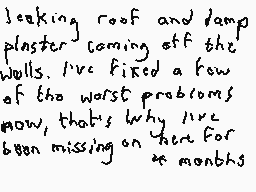 leaking roof and damp
plaster coming off the
walls. I've fixed a few
of the worst problems
now, that's why I've
been missing on here for
* months